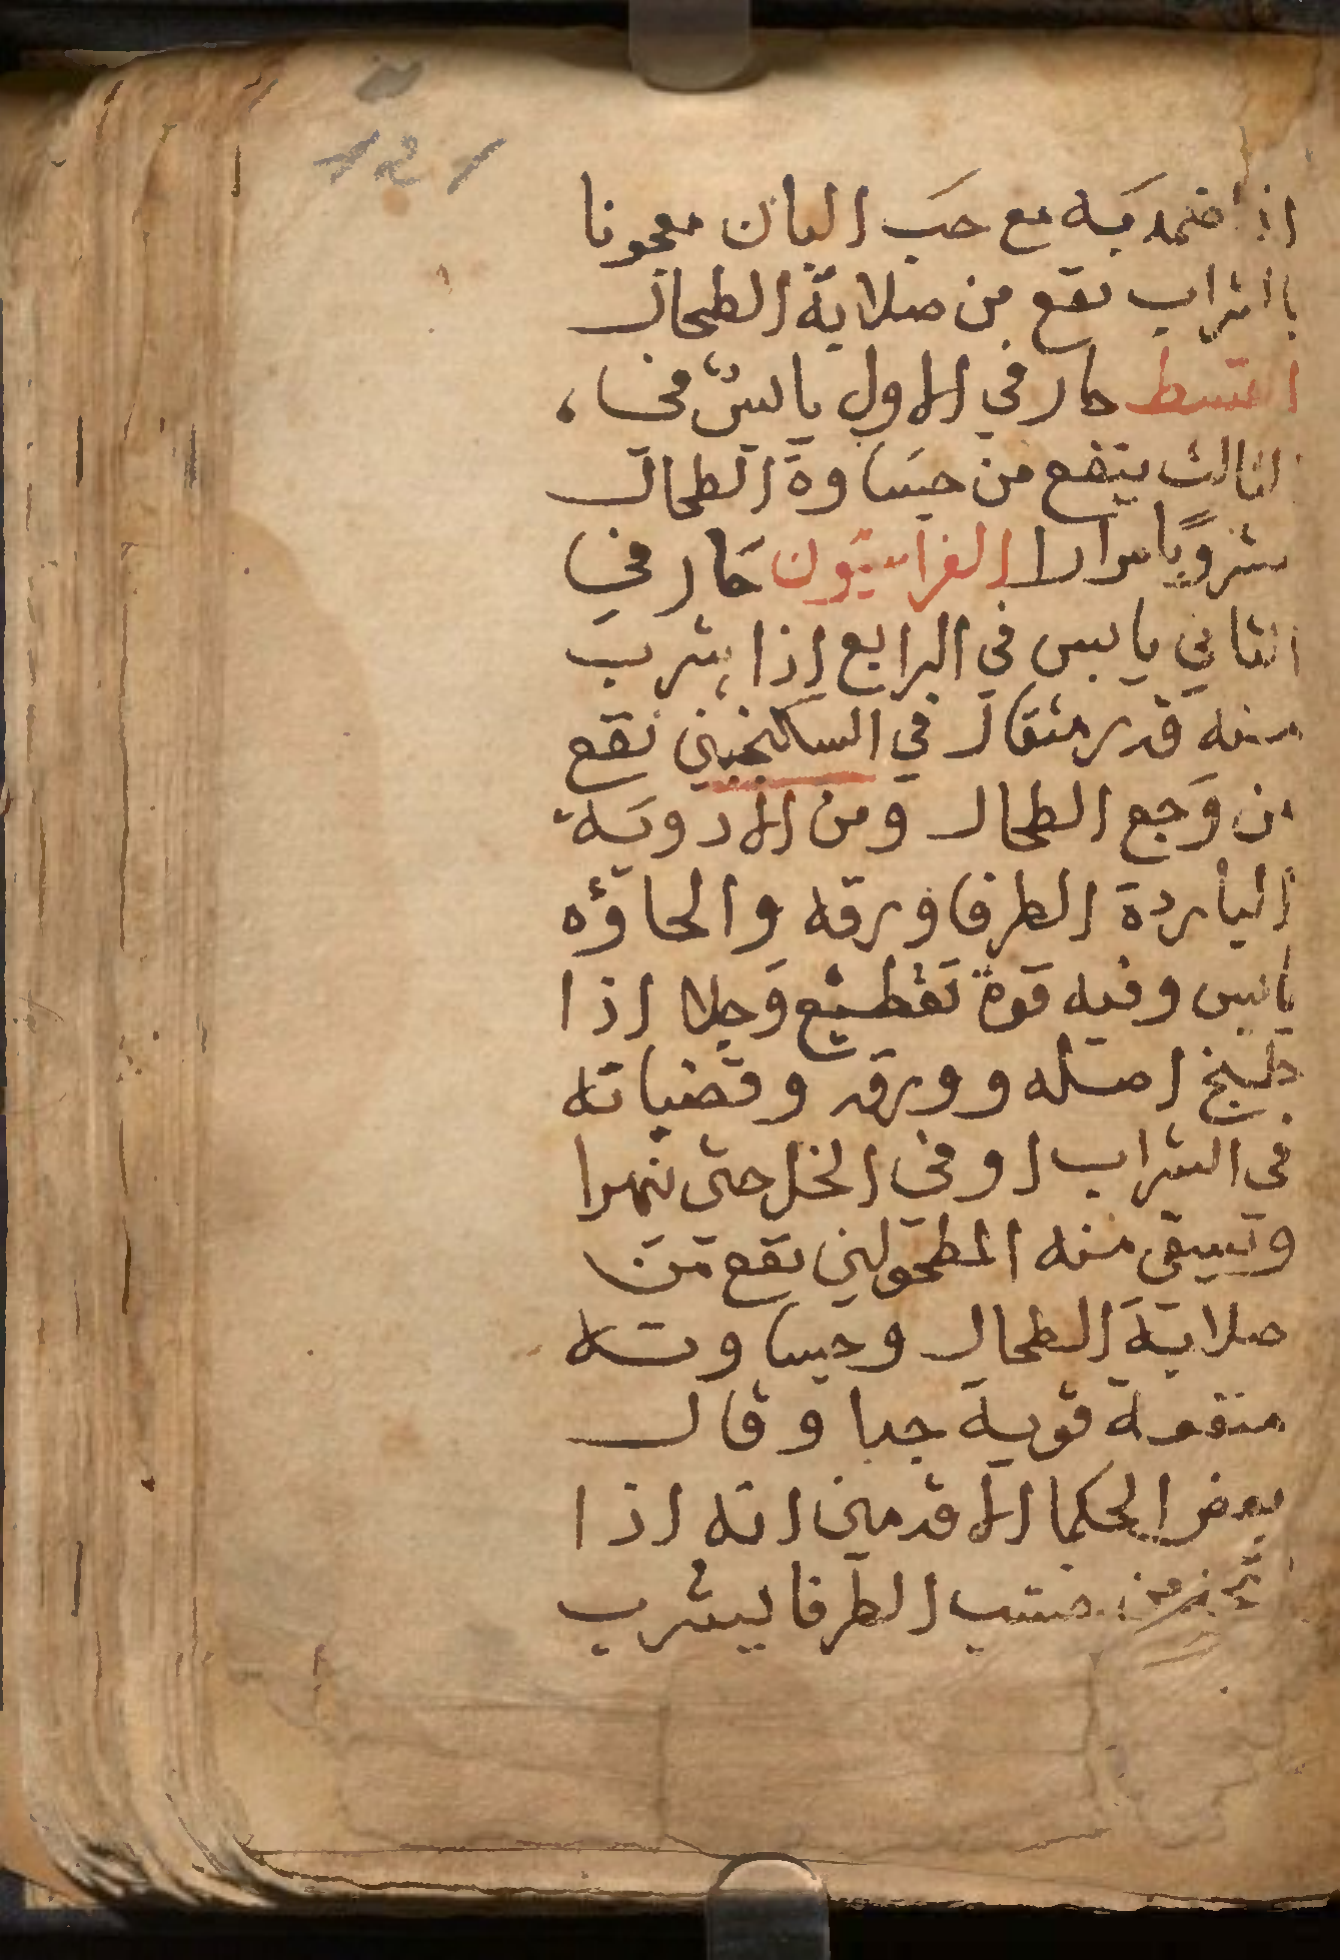 121
اذا ضمد به مع حب البان معجونا
بالشراب نفع من صلابة الطحال
القسط حار في الاول يابس في
الثالث ينفع من جساوة الطحال
مرارا الفراسيون حار في
الثاني يابس في الرابع اذا شرب
منه قدر مثقال في السكنجبين نفع
من وجع الطحال ومن الادوية
الباردة الطرفا ورقه والحاؤه
يابس وفيه قوة تقطيع وجلا اذا
طبخ اصله وورقه وقضبانه
في الشراب او في الخل حتى يتهرا
وتسقى منه المطحولين نفع من
صلابة الطحال وجساوته
منفعة قوية جدا وقال
بعض الحكما الاقدمين انه اذا
اتخذ من خشب الطرفا ليشرب